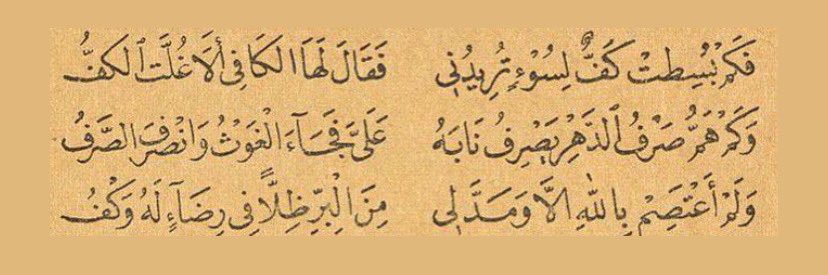 فَكَمْ بُسِطَتْ كَفٌّ لِسُوْءٍ تُرِيدُنِي فَقَالَ لَهَا الكَافِي أَلَا غُلَّتِ ٱلكَفُّ
وَكَمْ هَمَّ صَرْفُ ٱلدَّهْرِ يَصْرِفُ نَابَهُ عَلَيَّ فَجَآءَ الْغَوْثُ وَانْصَرَفَ الصَّرْفُ
وَلَمْ أَعْتَصِمْ بِاللهِ الَّا وَمَدَّ لِي مِنَ الْبِرِّ ظِلًّا فِي رِضَآءٍ لَهُ وَكْفُ